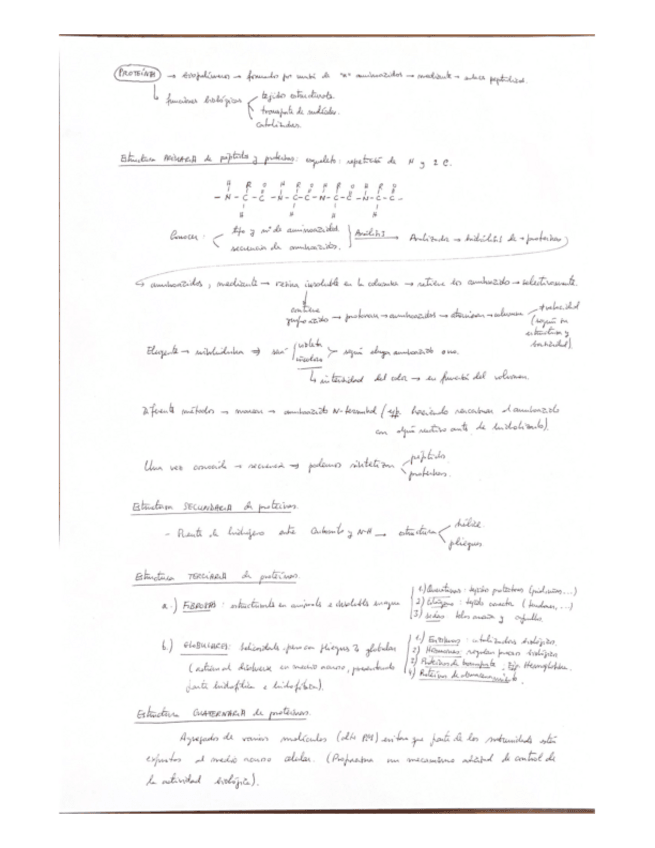 PROTEÍNA → biopolímeros → formados por unión de "n" aminoácidos → mediante → enlace peptídico.
funciones biológicas
tejidos estructurales
transporte de moléculas.
catalizador.
Estructura PRIMARIA de péptidos y proteínas: esqueleto: repetición de N y 2 C.
H R O H R O H R O H R O
- N - C - C - N - C - C - N - C - C - N - C - C -
H H H H
Conocer
tipo y nº de aminoácidos
secuencia de aminoácidos.
Análisis → Analizador → hidrólisis de → proteínas
→ aminoácidos, mediante → resina insoluble en la columna → retiene los aminoácidos → selectivamente.
contiene
grupos → aminoácidos → → columna
velocidad
(según su
estructura y
Eluyente → ninhidrina ⇒ será
violeta
según tenga aminoácido o no.
→ intensidad del color → en función del volumen.
Diferente métodos → marcar → aminoácido N-terminal (ejp. haciendo reaccionar el aminoácido
con algún reactivo antes de hidrolizarlo).
Una vez conocido → secuencia → podemos sintetizar
péptidos.
proteínas.
Estructura SECUNDARIA de proteínas.
- Puente de hidrógeno entre Carbonilo y N-H → estructura
hélice.
pliegues
Estructura TERCIARIA de proteínas.
a.) FIBROSAS: estructurales en animales e insolubles en agua
1) Queratinas: tejido protectores (piel, uñas, ...)
2) Colágeno: tejido conector (tendones, ...)
3) Sedas telas araña y capullos.
b.) GLOBULARES: pliegues globular
( al disolverse en medio acuoso, presentando
parte hidrofílica e hidrofóbica).
1) Enzimas: catalizadores biológicos.
2) Hormonas: regulan proceso biológico
3) Proteínas de transporte. Ejp. Hemoglobina.
4) Proteínas de almacenamiento.
Estructura CUATERNARIA de proteínas.
Agregados de varias moléculas (alto PM) evitan que parte de las subunidades estén
expuestas al medio acuoso celular. (Proporciona un mecanismo adicional de control de
la actividad biológica).